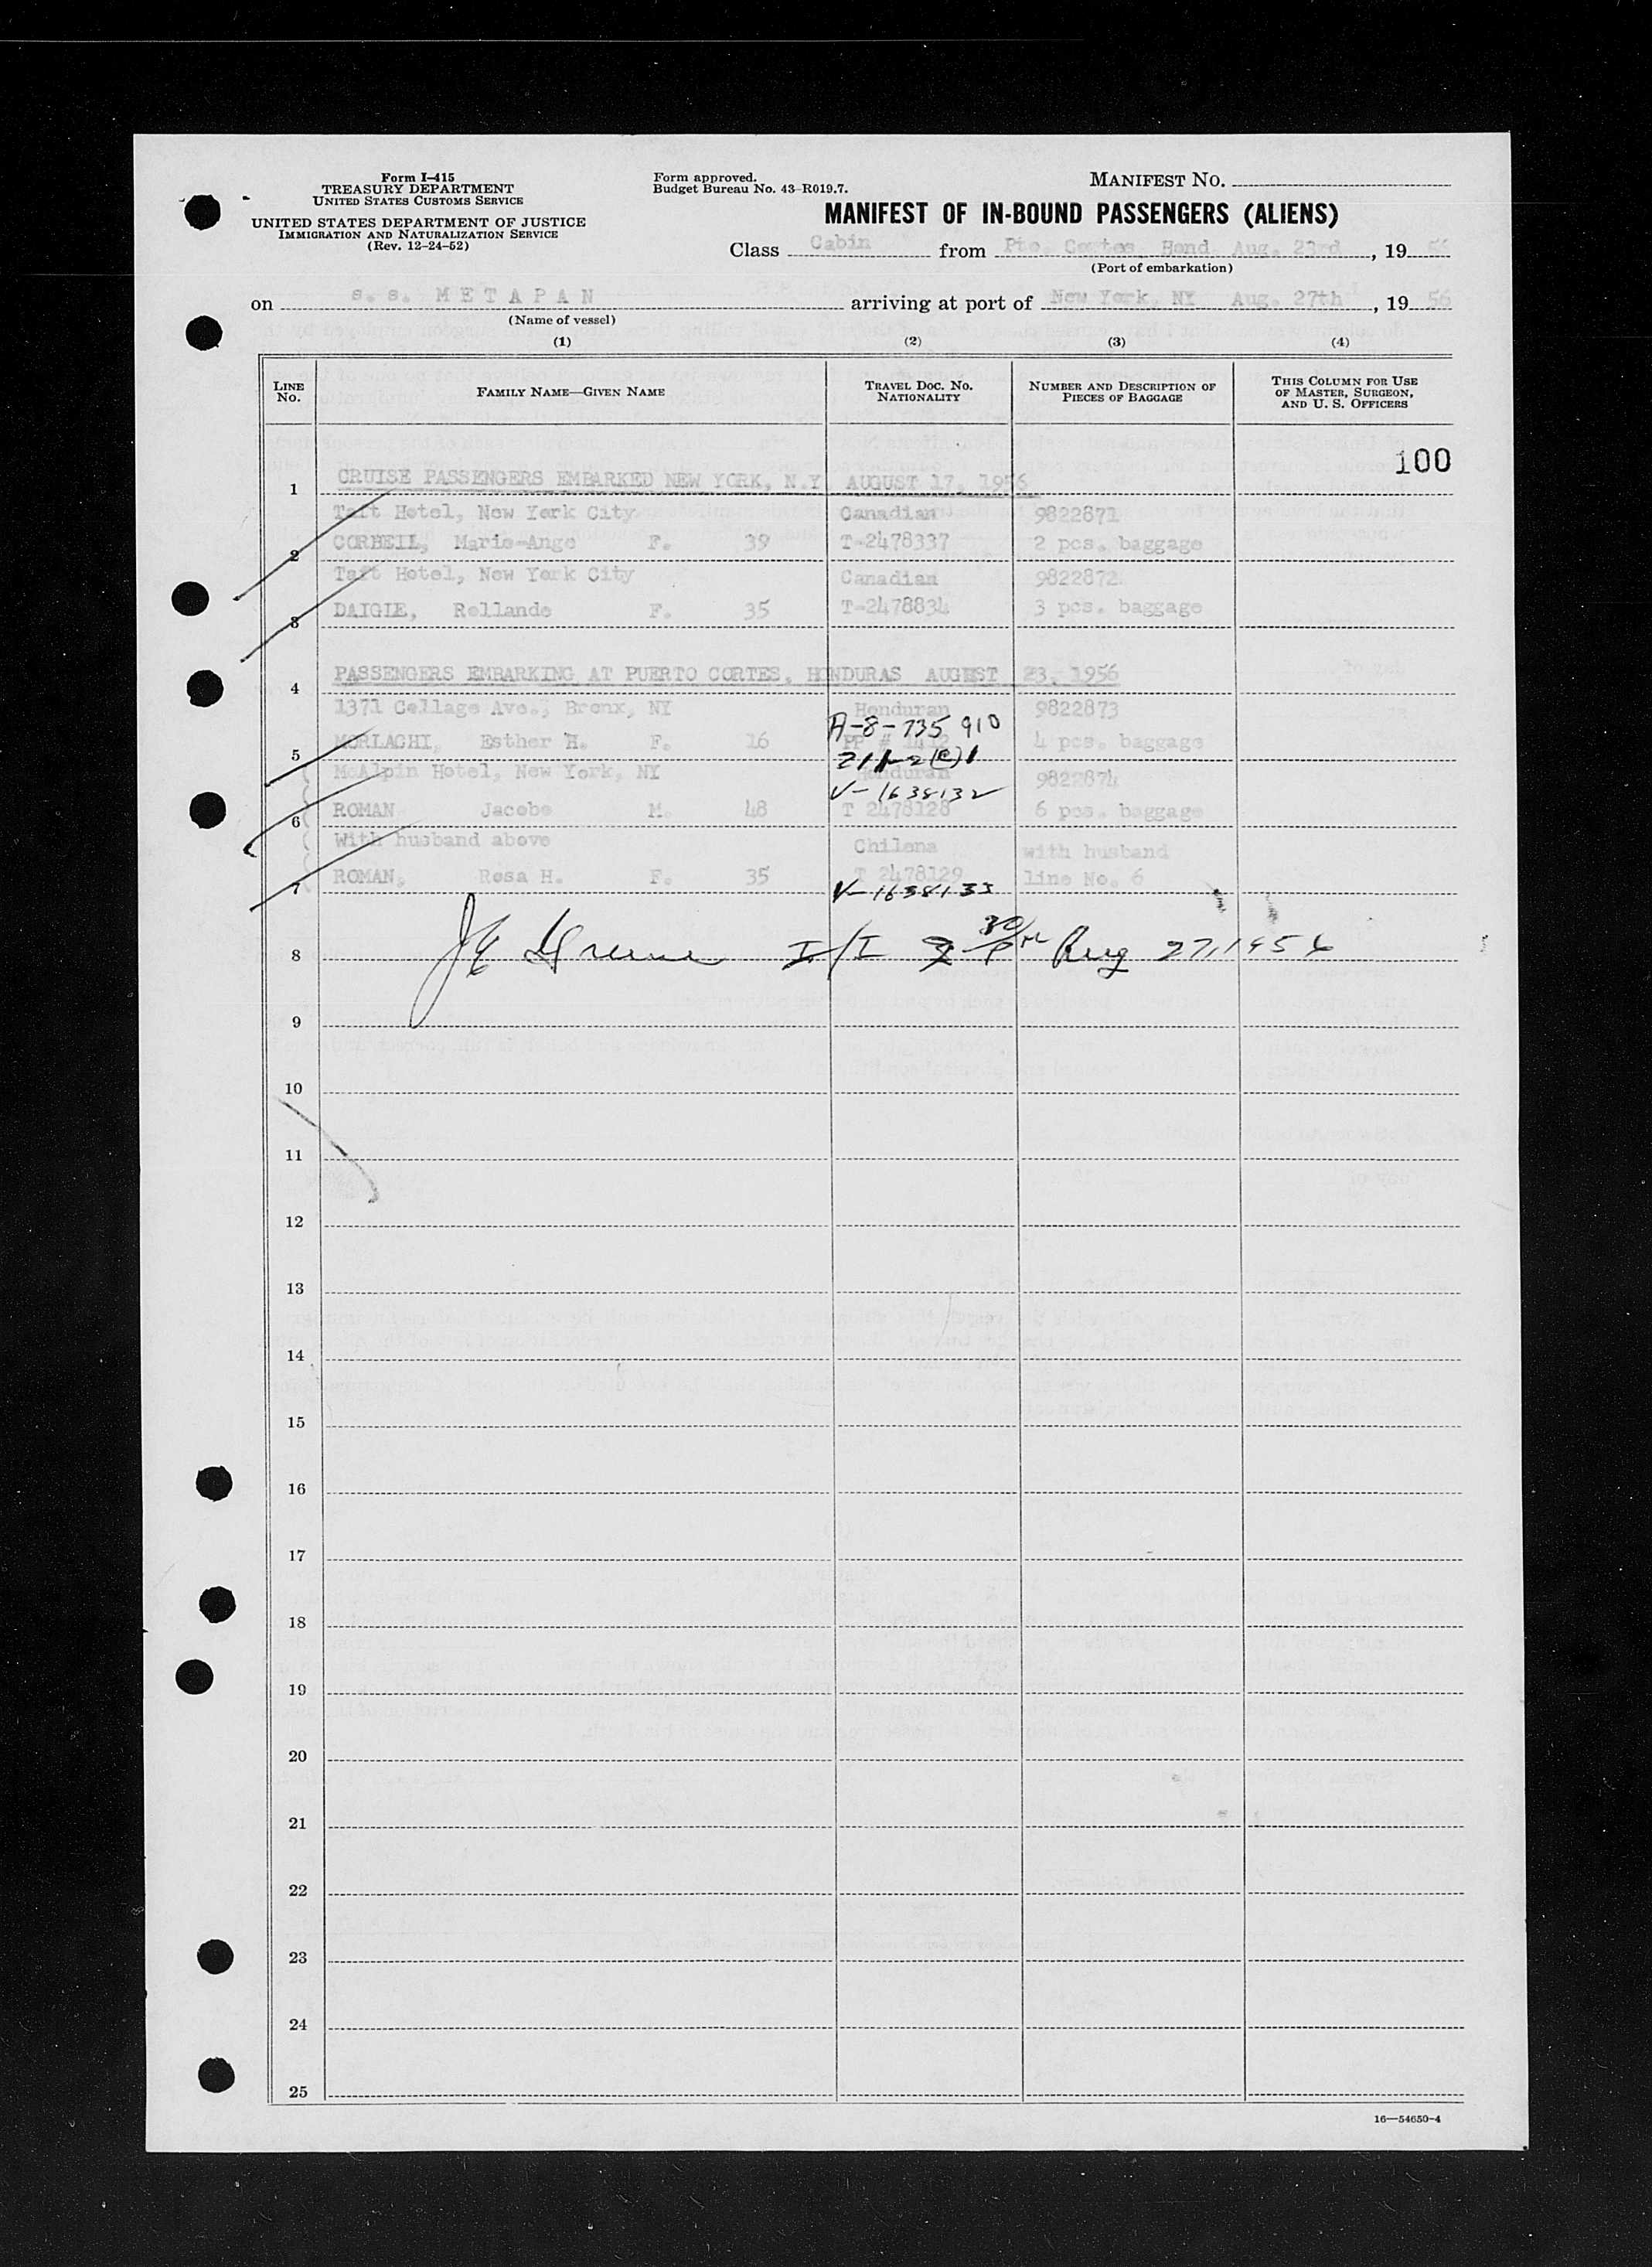 Form I-415
TREASURY DEPARTMENT
UNITED STATES CUSTOMS SERVICE
UNITED STATES DEPARTMENT OF JUSTICE
IMMIGRATION AND NATURALIZATION SERVICE
(Rev. 12-24-52)
Form approved.
Budget Bureau No. 43-R019.7.
MANIFEST NO.
MANIFEST OF IN-BOUND PASSENGERS (ALIENS)
Class Cabin from Pto. Cortes Hond. Aug. 23rd, 19 56
(Port of embarkation)
on s. s. METAPAN arriving at port of New York, NY Aug. 27th, 19 56
(Name of vessel)
(1) (2) (3) (4)
LINE NO. FAMILY NAME—GIVEN NAME TRAVEL DOC. NO. NATIONALITY NUMBER AND DESCRIPTION OF PIECES OF BAGGAGE THIS COLUMN FOR USE OF MASTER, SURGEON, AND U. S. OFFICERS
100
1 CRUISE PASSENGERS EMBARKED NEW YORK, N.Y. AUGUST 17, 1956
Taft Hotel, New York City Canadian 9822871
2 CORBEIL, Marie-Ange F. 39 T-2478337 2 pcs. baggage
Taft Hotel, New York City Canadian 9822872
3 DAIGIE, Rollande F. 35 T-2478834 3 pcs. baggage
4 PASSENGERS EMBARKING AT PUERTO CORTES, HONDURAS AUGUST 23, 1956
1371 Collage Ave., Bronx, NY Honduran 9822873
A-8-735 910
5 MORLAGHI, Esther H. F. 16 PP # 1412 4 pcs. baggage
McAlpin Hotel, New York, NY Honduran 9822874
V-1638132
6 ROMAN Jacobo M. 48 T 2478128 6 pcs. baggage
With husband above Chilena with husband
7 ROMAN, Rosa H. F. 35 T 2478129 line No. 6
V-1638133
8 I/I 30 PM Aug 27, 1956
9
10
11
12
13
14
15
16
17
18
19
20
21
22
23
24
25
16—54650-4